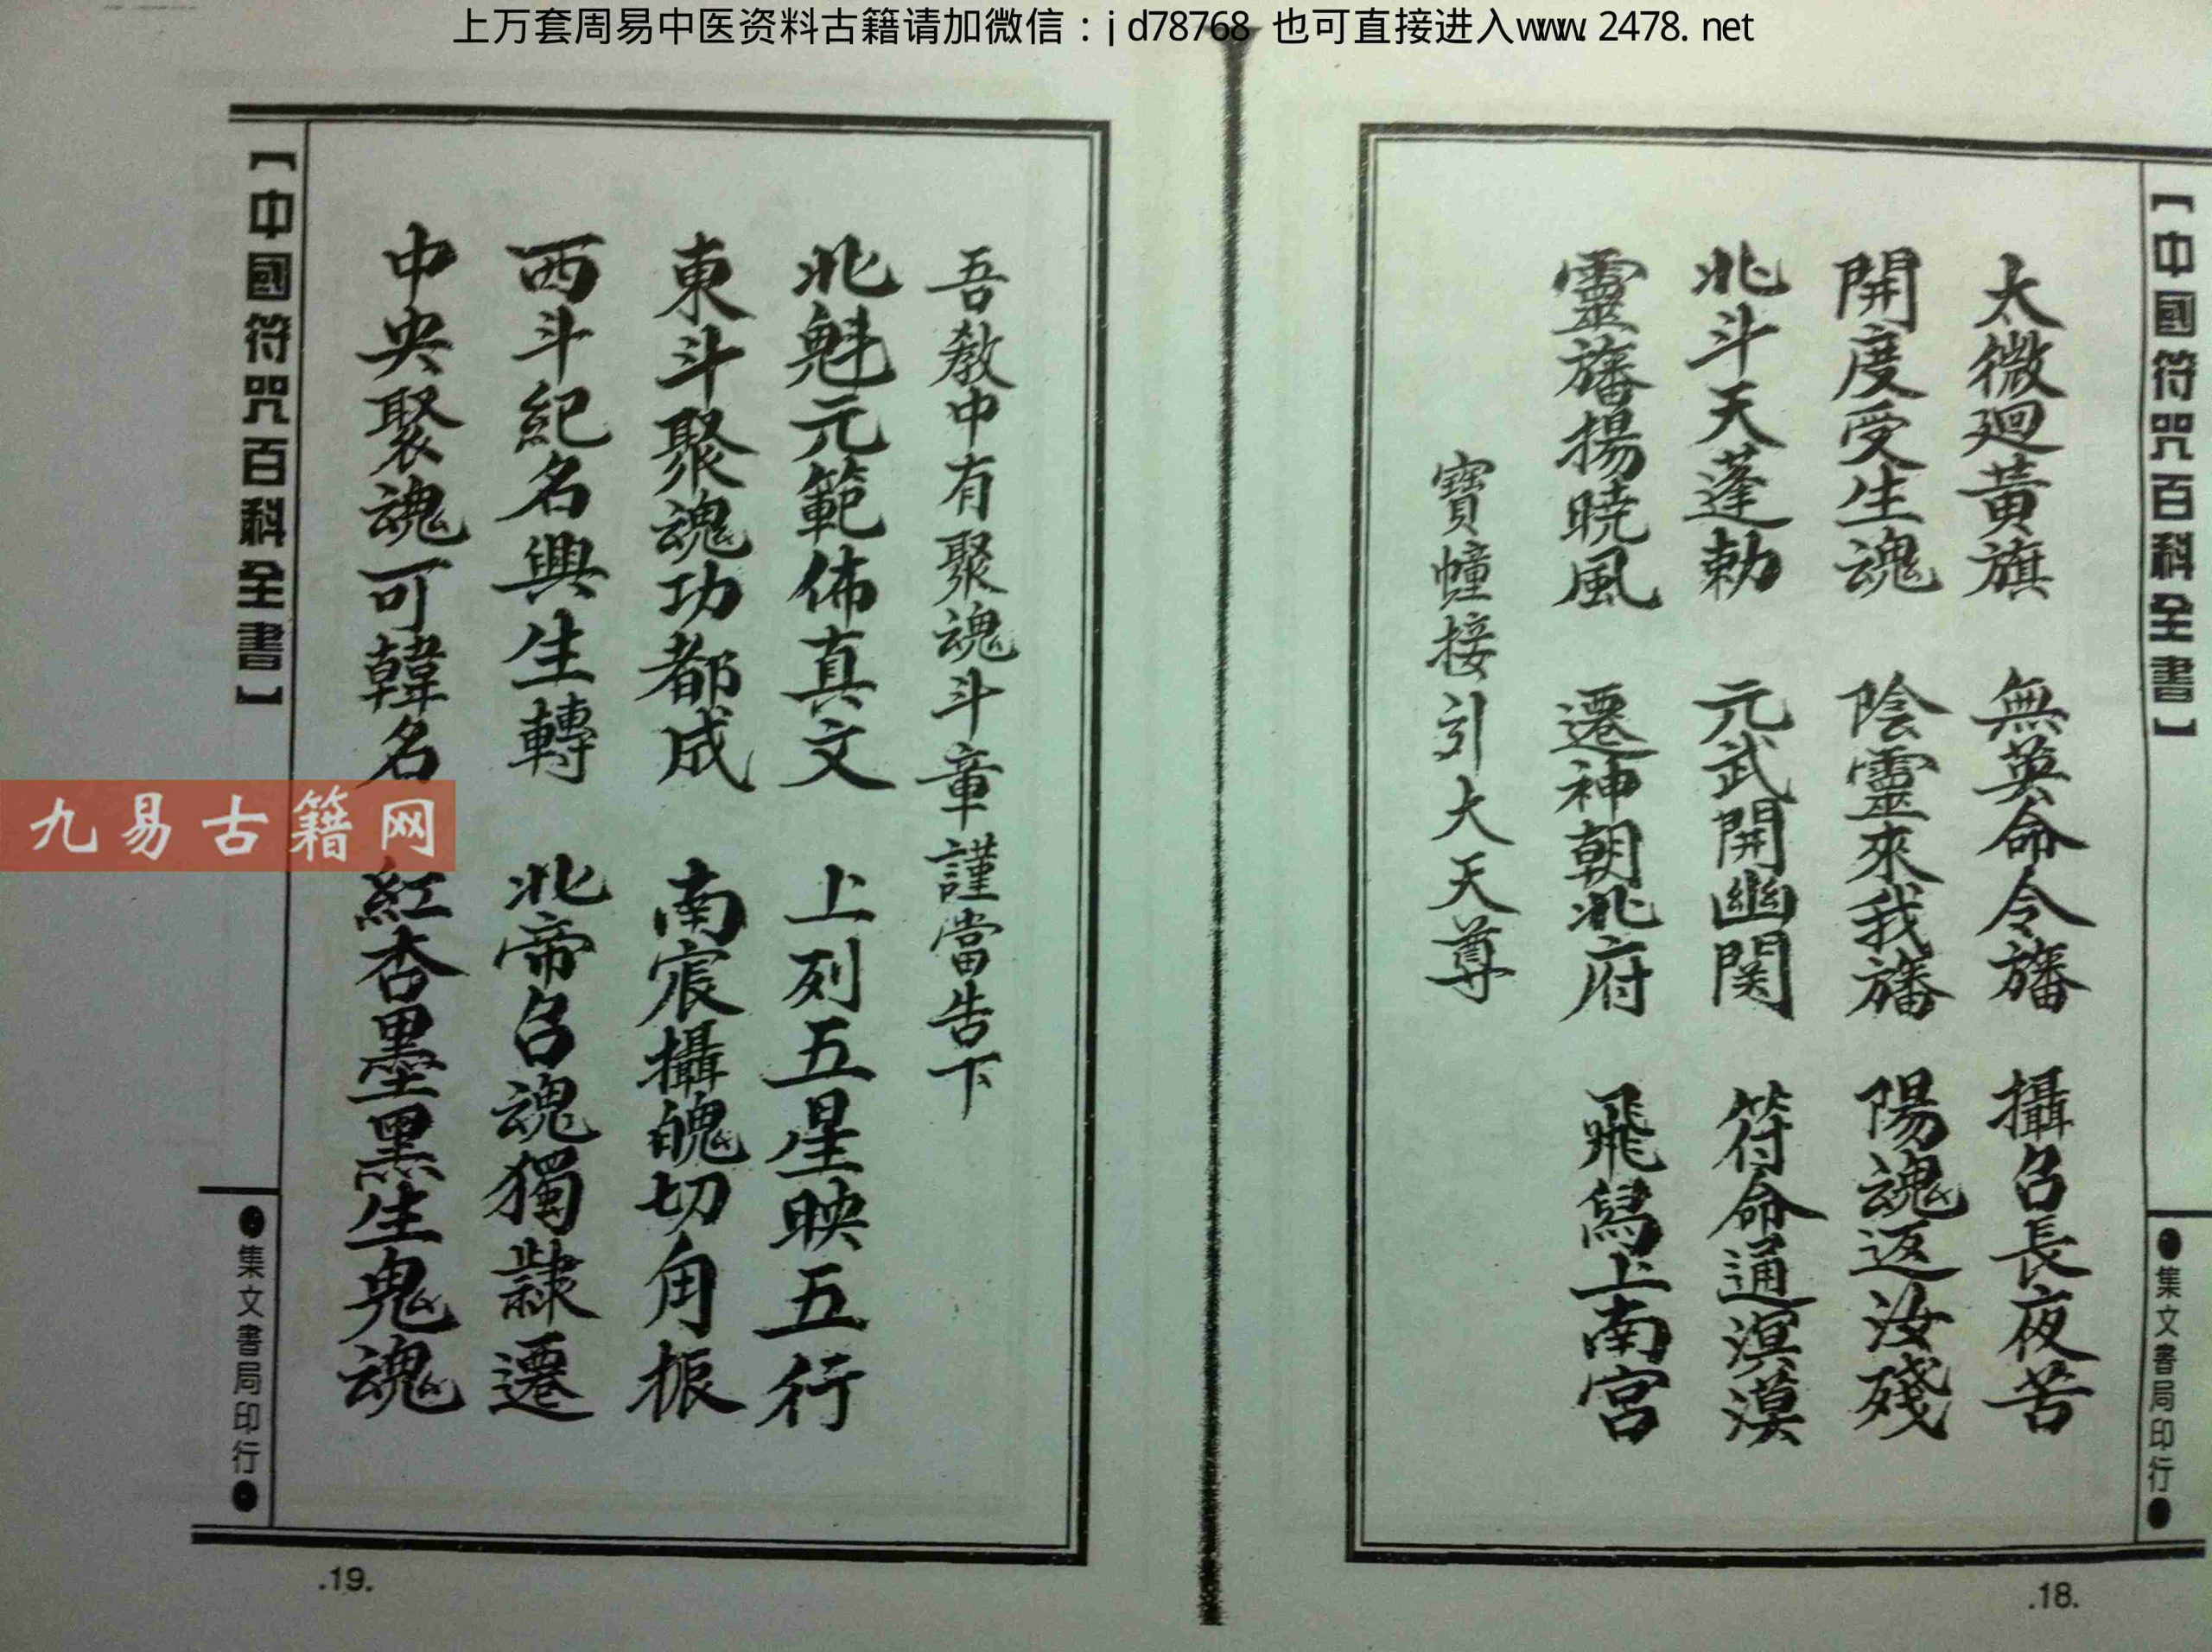 上万套周易中医资料古籍请加微信：jd78768 也可直接进入www.2478.net
【中國符咒百科全書】
●集文書局印行●
太微迴黃旗 無英命令旛 攝召長夜苦
開度受生魂 陰靈來我旛 陽魂返汝殘
北斗天蓬勅 元武開幽関 符命通溟漠
靈旛揚曉風 遷神朝北府 飛舄上南宮
寶幢接引大天尊
.18.
吾教中有聚魂斗章謹當告下
北魁元範佈真文 上列五星映五行
東斗聚魂功都成 南宸攝魄切角振
西斗紀名興生轉 北帝召魂獨隸遷
中央聚魂可韓名 紅杏墨黑生鬼魂
【中國符咒百科全書】
●集文書局印行●
.19.
九易古籍网